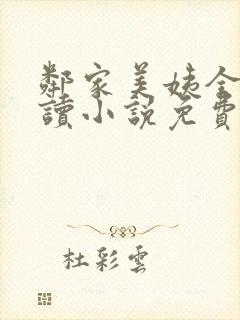 鄰家美姨全
讀小説免費
杜彩雲